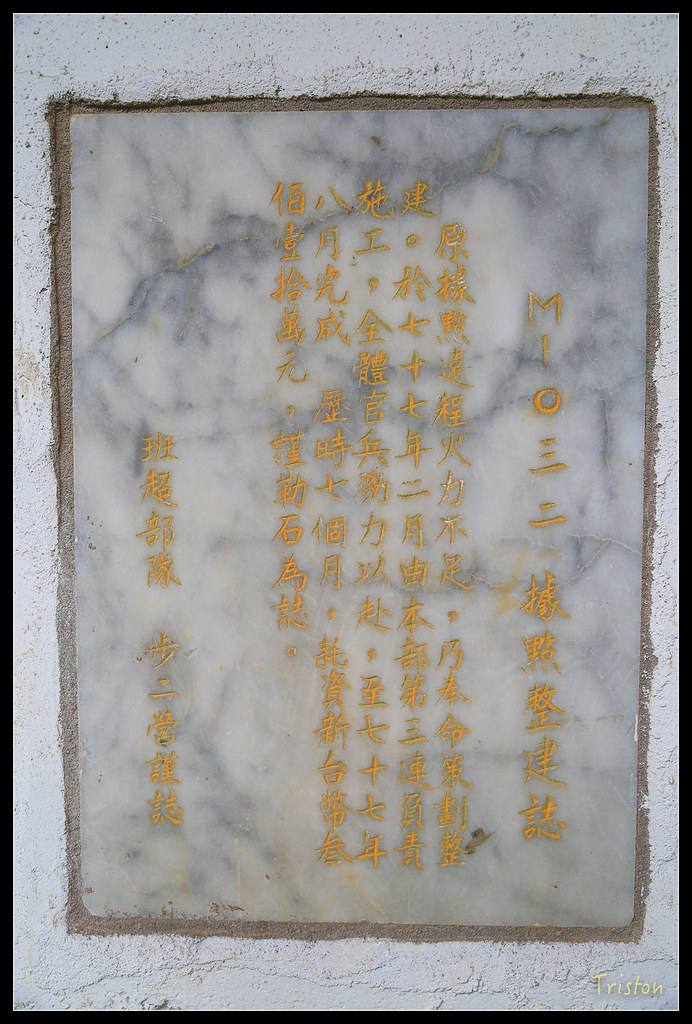 M一〇三二據點整建誌
原據點遠程火力不足，乃奉命策劃整
建。於七十七年二月由本部第三連負責
施工，全體官兵勠力以赴，至七十七年
八月完成　歷時七個月，耗資新台幣叁
佰壹拾萬元，謹勒石為誌。
班超部隊　步二營謹誌
Triston